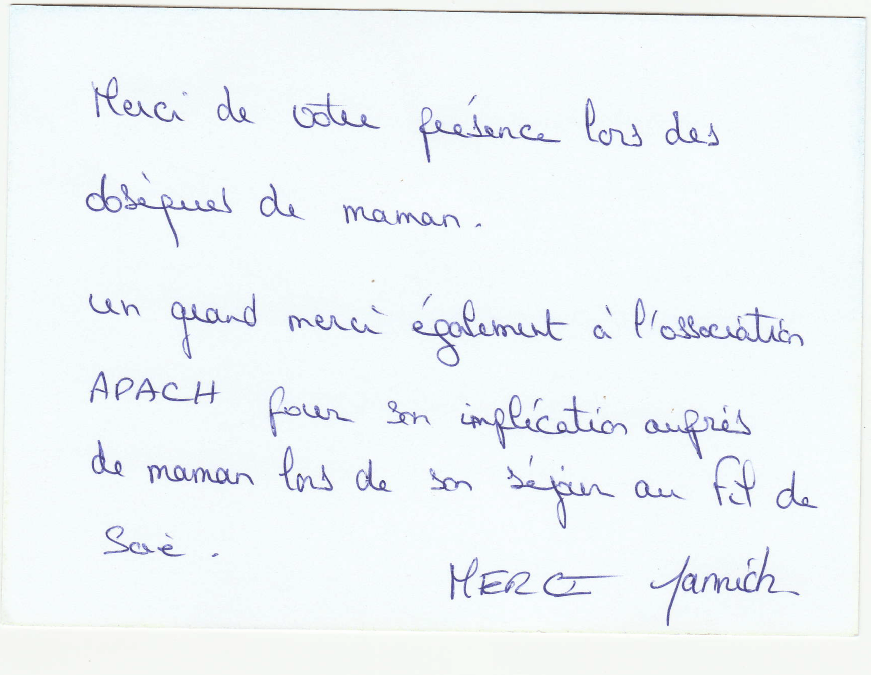 Merci de votre présence lors des
obsèques de maman.
un grand merci également à l'association
APACH pour son implication auprès
de maman lors de son séjour au Fil de
Soie.
MERCI Yannick